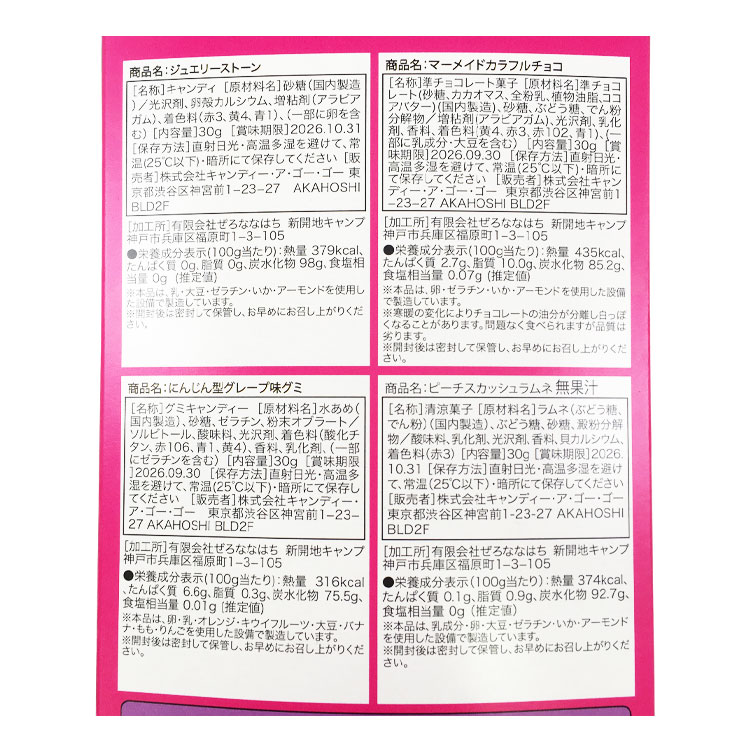 商品名:ジュエリーストーン
[名称]キャンディ [原材料名]砂糖(国内製造)
/光沢剤、卵殻カルシウム、増粘剤(アラビア
ガム)、着色料(赤3、黄4、青1)、(一部に卵を含
む) [内容量]30g [賞味期限]2026.10.31
[保存方法]直射日光・高温多湿を避けて、常
温(25℃以下)・暗所にて保存してください [販
売者]株式会社キャンディー・ア・ゴー・ゴー 東
京都渋谷区神宮前1-23-27 AKAHOSHI
BLD2F
[加工所]有限会社ぜろななはち 新開地キャンプ
神戸市兵庫区福原町1-3-105
●栄養成分表示(100g当たり):熱量 379kcal、
たんぱく質 0g、脂質 0g、炭水化物 98g、食塩相
当量 0g (推定値)
※本品は、乳・大豆・ゼラチン・いか・アーモンドを使用し
た設備で製造しています。
※開封後は密封して保管し、お早めにお召し上がりくだ
さい。
商品名:マーメイドカラフルチョコ
[名称]準チョコレート菓子 [原材料名]準チョコ
レート(砂糖、カカオマス、全粉乳、植物油脂、ココ
アバター)(国内製造)、砂糖、ぶどう糖、でん粉
分解物/増粘剤(アラビアガム)、光沢剤、乳化
剤、香料、着色料(黄4、赤3、赤102、青1)、(一
部に乳成分・大豆を含む) [内容量]30g [賞
味期限]2026.09.30 [保存方法]直射日光・
高温多湿を避けて、常温(25℃以下)・暗所に
て保存してください [販売者]株式会社キャン
ディー・ア・ゴー・ゴー 東京都渋谷区神宮前1
-23-27 AKAHOSHI BLD2F
[加工所]有限会社ぜろななはち 新開地キャンプ
神戸市兵庫区福原町1-3-105
●栄養成分表示(100g当たり):熱量 435kcal、
たんぱく質 2.7g、脂質 10.0g、炭水化物 85.2g、
食塩相当量 0.07g (推定値)
※本品は、卵・ゼラチン・いか・アーモンドを使用した設備
で製造しています。
※寒暖の変化によりチョコレートの油分が分離し白っぽ
くなることがあります。問題なく食べられますが品質は
劣ります。
※開封後は密封して保管し、お早めにお召し上がりください。
商品名:にんじん型グレープ味グミ
[名称]グミキャンディー [原材料名]水あめ
(国内製造)、砂糖、ゼラチン、粉末オブラート/
ソルビトール、酸味料、光沢剤、着色料(酸化チ
タン、赤106、青1、黄4)、香料、乳化剤、(一部
にゼラチンを含む) [内容量]30g [賞味期限]
2026.09.30 [保存方法]直射日光・高温多
湿を避けて、常温(25℃以下)・暗所にて保存し
てください [販売者]株式会社キャンディー・
ア・ゴー・ゴー 東京都渋谷区神宮前1-23-
27 AKAHOSHI BLD2F
[加工所]有限会社ぜろななはち 新開地キャンプ
神戸市兵庫区福原町1-3-105
●栄養成分表示(100g当たり):熱量 316kcal、
たんぱく質 6.6g、脂質 0.3g、炭水化物 75.5g、
食塩相当量 0.01g (推定値)
※本品は、卵・乳・オレンジ・キウイフルーツ・大豆・バナ
ナ・もも・りんごを使用した設備で製造しています。
※開封後は密封して保管し、お早めにお召し上がりくだ
さい。
商品名:ピーチスカッシュラムネ 無果汁
[名称]清涼菓子 [原材料名]ラムネ(ぶどう糖、
でん粉)(国内製造)、ぶどう糖、砂糖、澱粉分解
物/酸味料、乳化剤、光沢剤、香料、貝カルシウム、
着色料(赤3) [内容量]30g [賞味期限]2026.
10.31 [保存方法]直射日光・高温多湿を避け
て、常温(25℃以下)・暗所にて保存してください
[販売者]株式会社キャンディー・ア・ゴー・ゴー
東京都渋谷区神宮前1-23-27 AKAHOSHI
BLD2F
[加工所]有限会社ぜろななはち 新開地キャンプ
神戸市兵庫区福原町1-3-105
●栄養成分表示(100g当たり):熱量 374kcal、
たんぱく質 0.1g、脂質 0.9g、炭水化物 92.7g、
食塩相当量 0g (推定値)
※本品は、乳成分・卵・大豆・ゼラチン・いか・アーモンド
を使用した設備で製造しています。
※開封後は密封して保管し、お早めにお召し上がりくだ
さい。